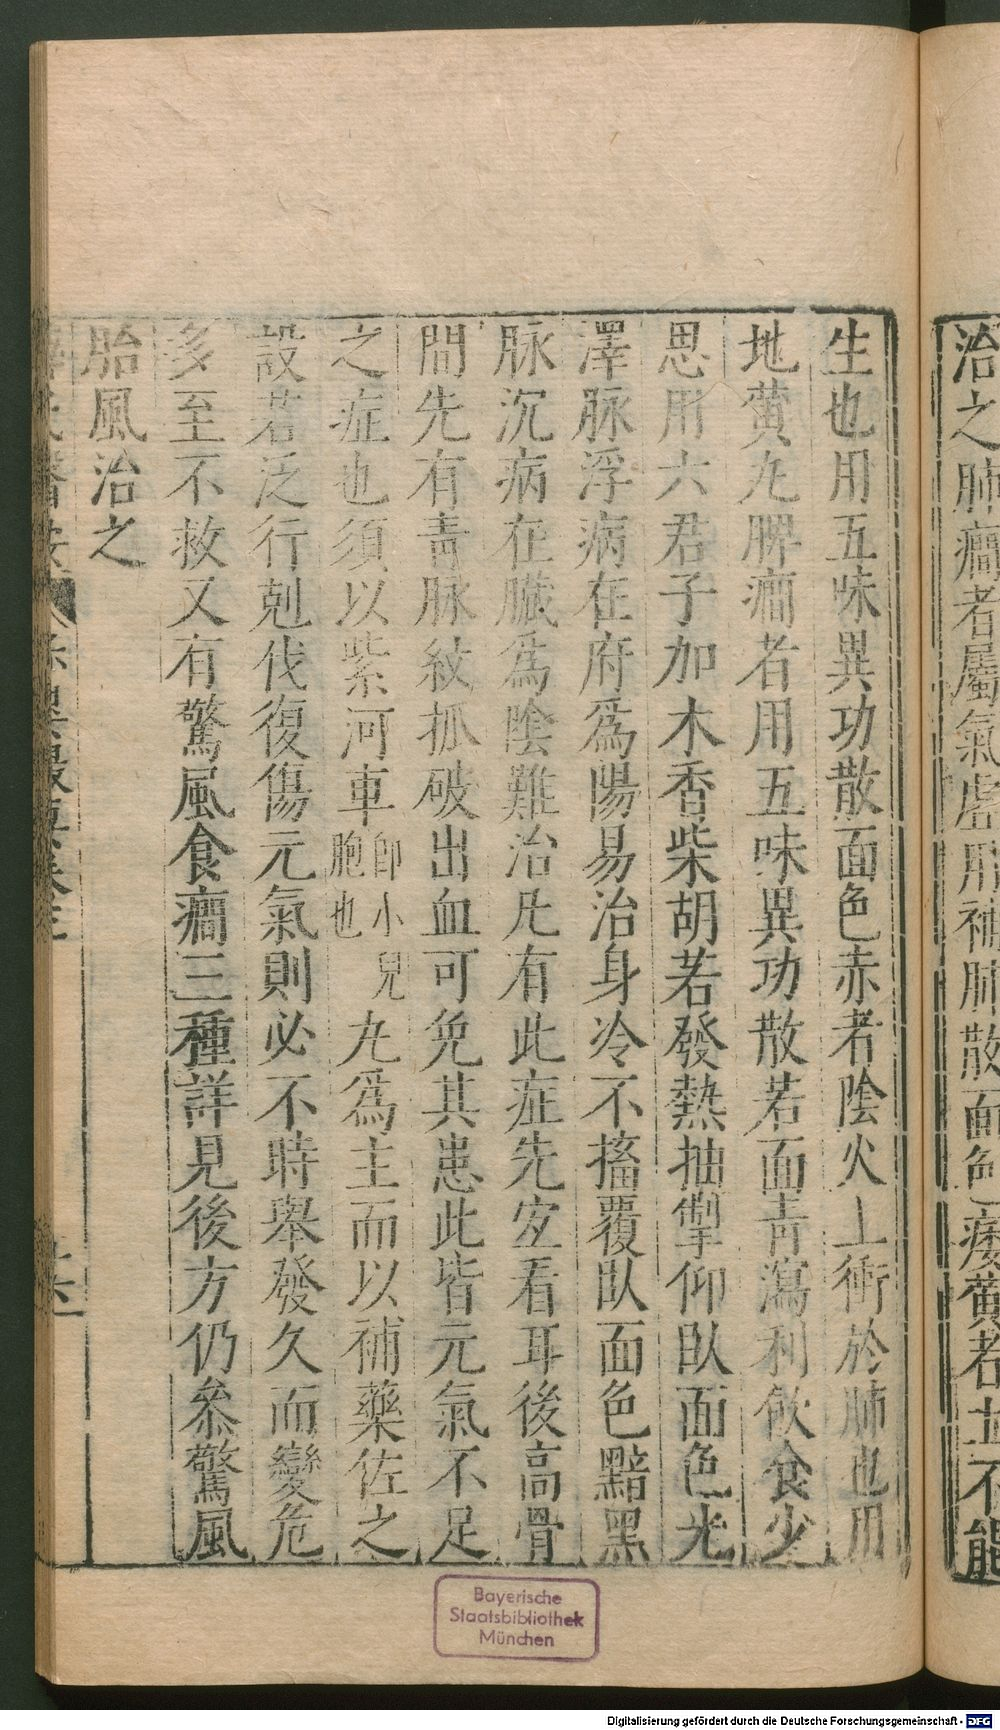 治之肺癎者屬氣虛用補肺散面色痿黃者土不能
生也用五味異功散面色赤者陰火上衝於肺也用
地黃丸脾癎者用五味異功散若面青瀉利飲食少
思用六君子加木香柴胡若發熱抽掣仰臥面色光
澤脉浮病在府爲陽易治身冷不搐覆臥面色黯黑
脉沉病在臟爲陰難治凡有此症先宜看耳後高骨
間先有青脉紋抓破出血可免其患此皆元氣不足
之症也須以紫河車即小兒胞也丸爲主而以補藥佐之
設若泛行剋伐復傷元氣則必不時舉發久而變危
多至不救又有驚風食癎三種詳見後方仍叅驚風
胎風治之
Bayerische
Staatsbibliothek
München
Digitalisierung gefördert durch die Deutsche Forschungsgemeinschaft - DFG